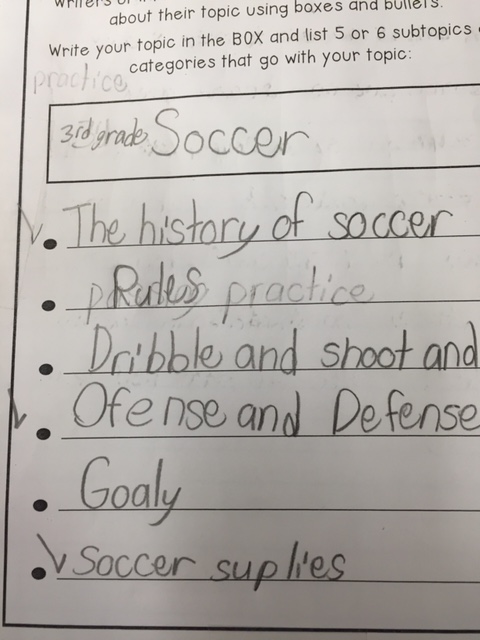 about their topic using boxes and bullets.
Write your topic in the BOX and list 5 or 6 subtopics
categories that go with your topic:
practice
3rd grade Soccer
The history of soccer
Rules practice
Dribble and shoot and
Ofense and Defense
Goaly
Soccer suplies